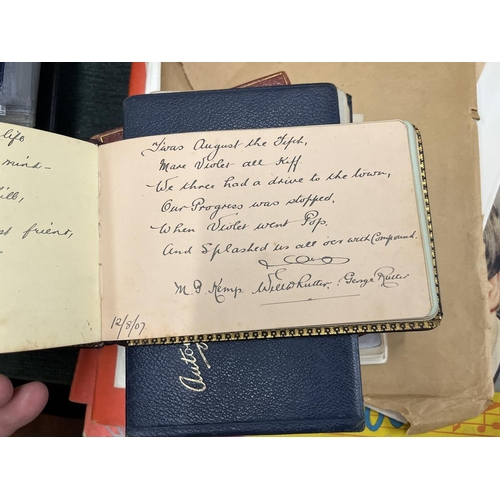 life
mind -
ill,
st friend,
'Twas August the Fifth,
Mare Violet all Kiff
We three had a drive to the town,
Our Progress was stopped,
When Violet went Pop,
And Splashed us all oer with Compound.
M. G. Kemp Will Rutter, George Rutter
12/8/07
Autog